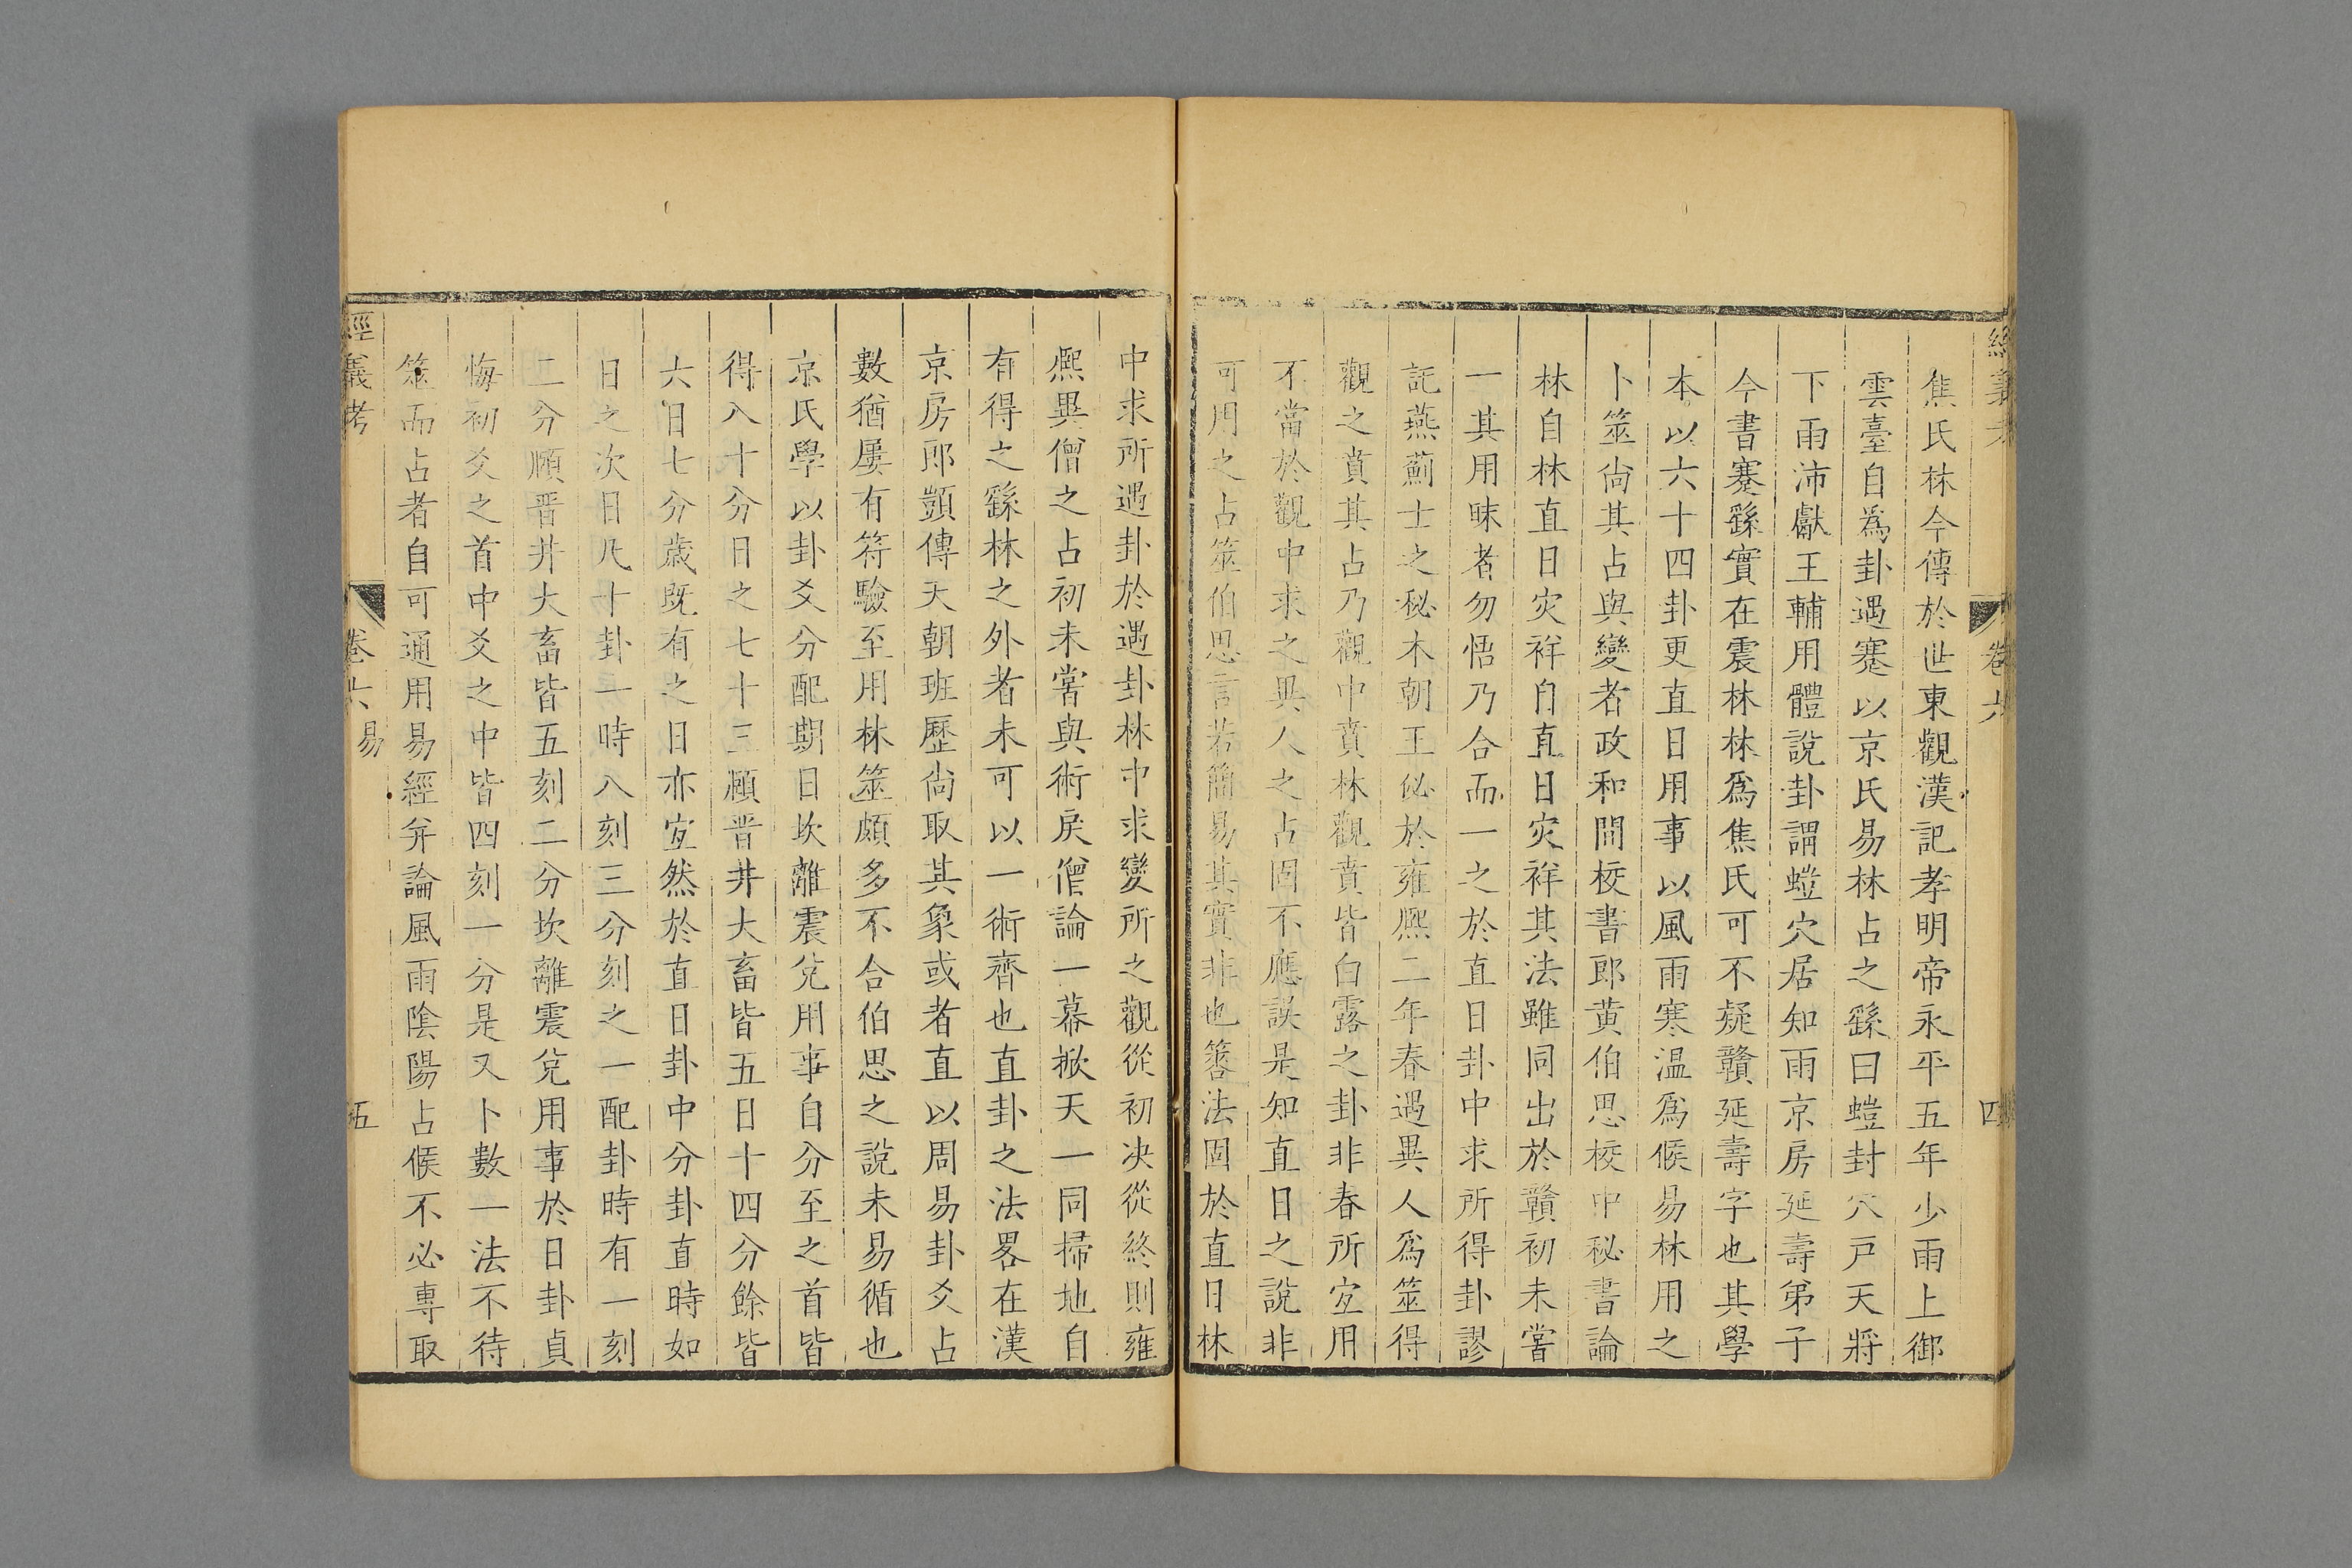 經義考
卷六
四
焦氏林今傳於世東觀漢記孝明帝永平五年少雨上御
雲臺自爲卦遇蹇以京氏易林占之繇曰螘封穴戸天將
下雨沛獻王輔用體說卦謂螘穴居知雨京房延壽弟子
今書蹇繇實在震林林爲焦氏可不疑贛延壽字也其學
本以六十四卦更直日用事以風雨寒温爲候易林用之
卜筮尚其占與變者政和間校書郎黄伯思校中秘書論
林自林直日灾祥自直日灾祥其法雖同出於贛初未嘗
一其用昧者勿悟乃合而一之於直日卦中求所得卦謬
託燕薊士之秘本朝王佖於雍熈二年春遇異人爲筮得
觀之賁其占乃觀中賁林觀賁皆白露之卦非春所宜用
不當於觀中求之異人之占固不應誤是知直日之說非
可用之占筮伯思言若簡易其實非也簭法固於直日林
中求所遇卦於遇卦林中求變所之觀從初决從終則雍
熈異僧之占初未嘗與術戾僧論一幕掀天一同掃地自
有得之繇林之外者未可以一術齊也直卦之法畧在漢
京房郎顗傳天朝班歷尚取其象或者直以周易卦爻占
數猶屢有符驗至用林筮頗多不合伯思之說未易循也
京氏學以卦爻分配期日坎離震兌用事自分至之首皆
得八十分日之七十三頤晋井大畜皆五日十四分餘皆
六日七分歲既有之日亦宜然於直日卦中分卦直時如
日之次日凡十卦一時八刻三分刻之一配卦時有一刻
二分頤晋井大畜皆五刻二分坎離震兌用事於日卦貞
悔初爻之首中爻之中皆四刻一分是又卜數一法不待
筮而占者自可通用易經弁論風雨陰陽占候不必專取
經義考
卷六
易
五